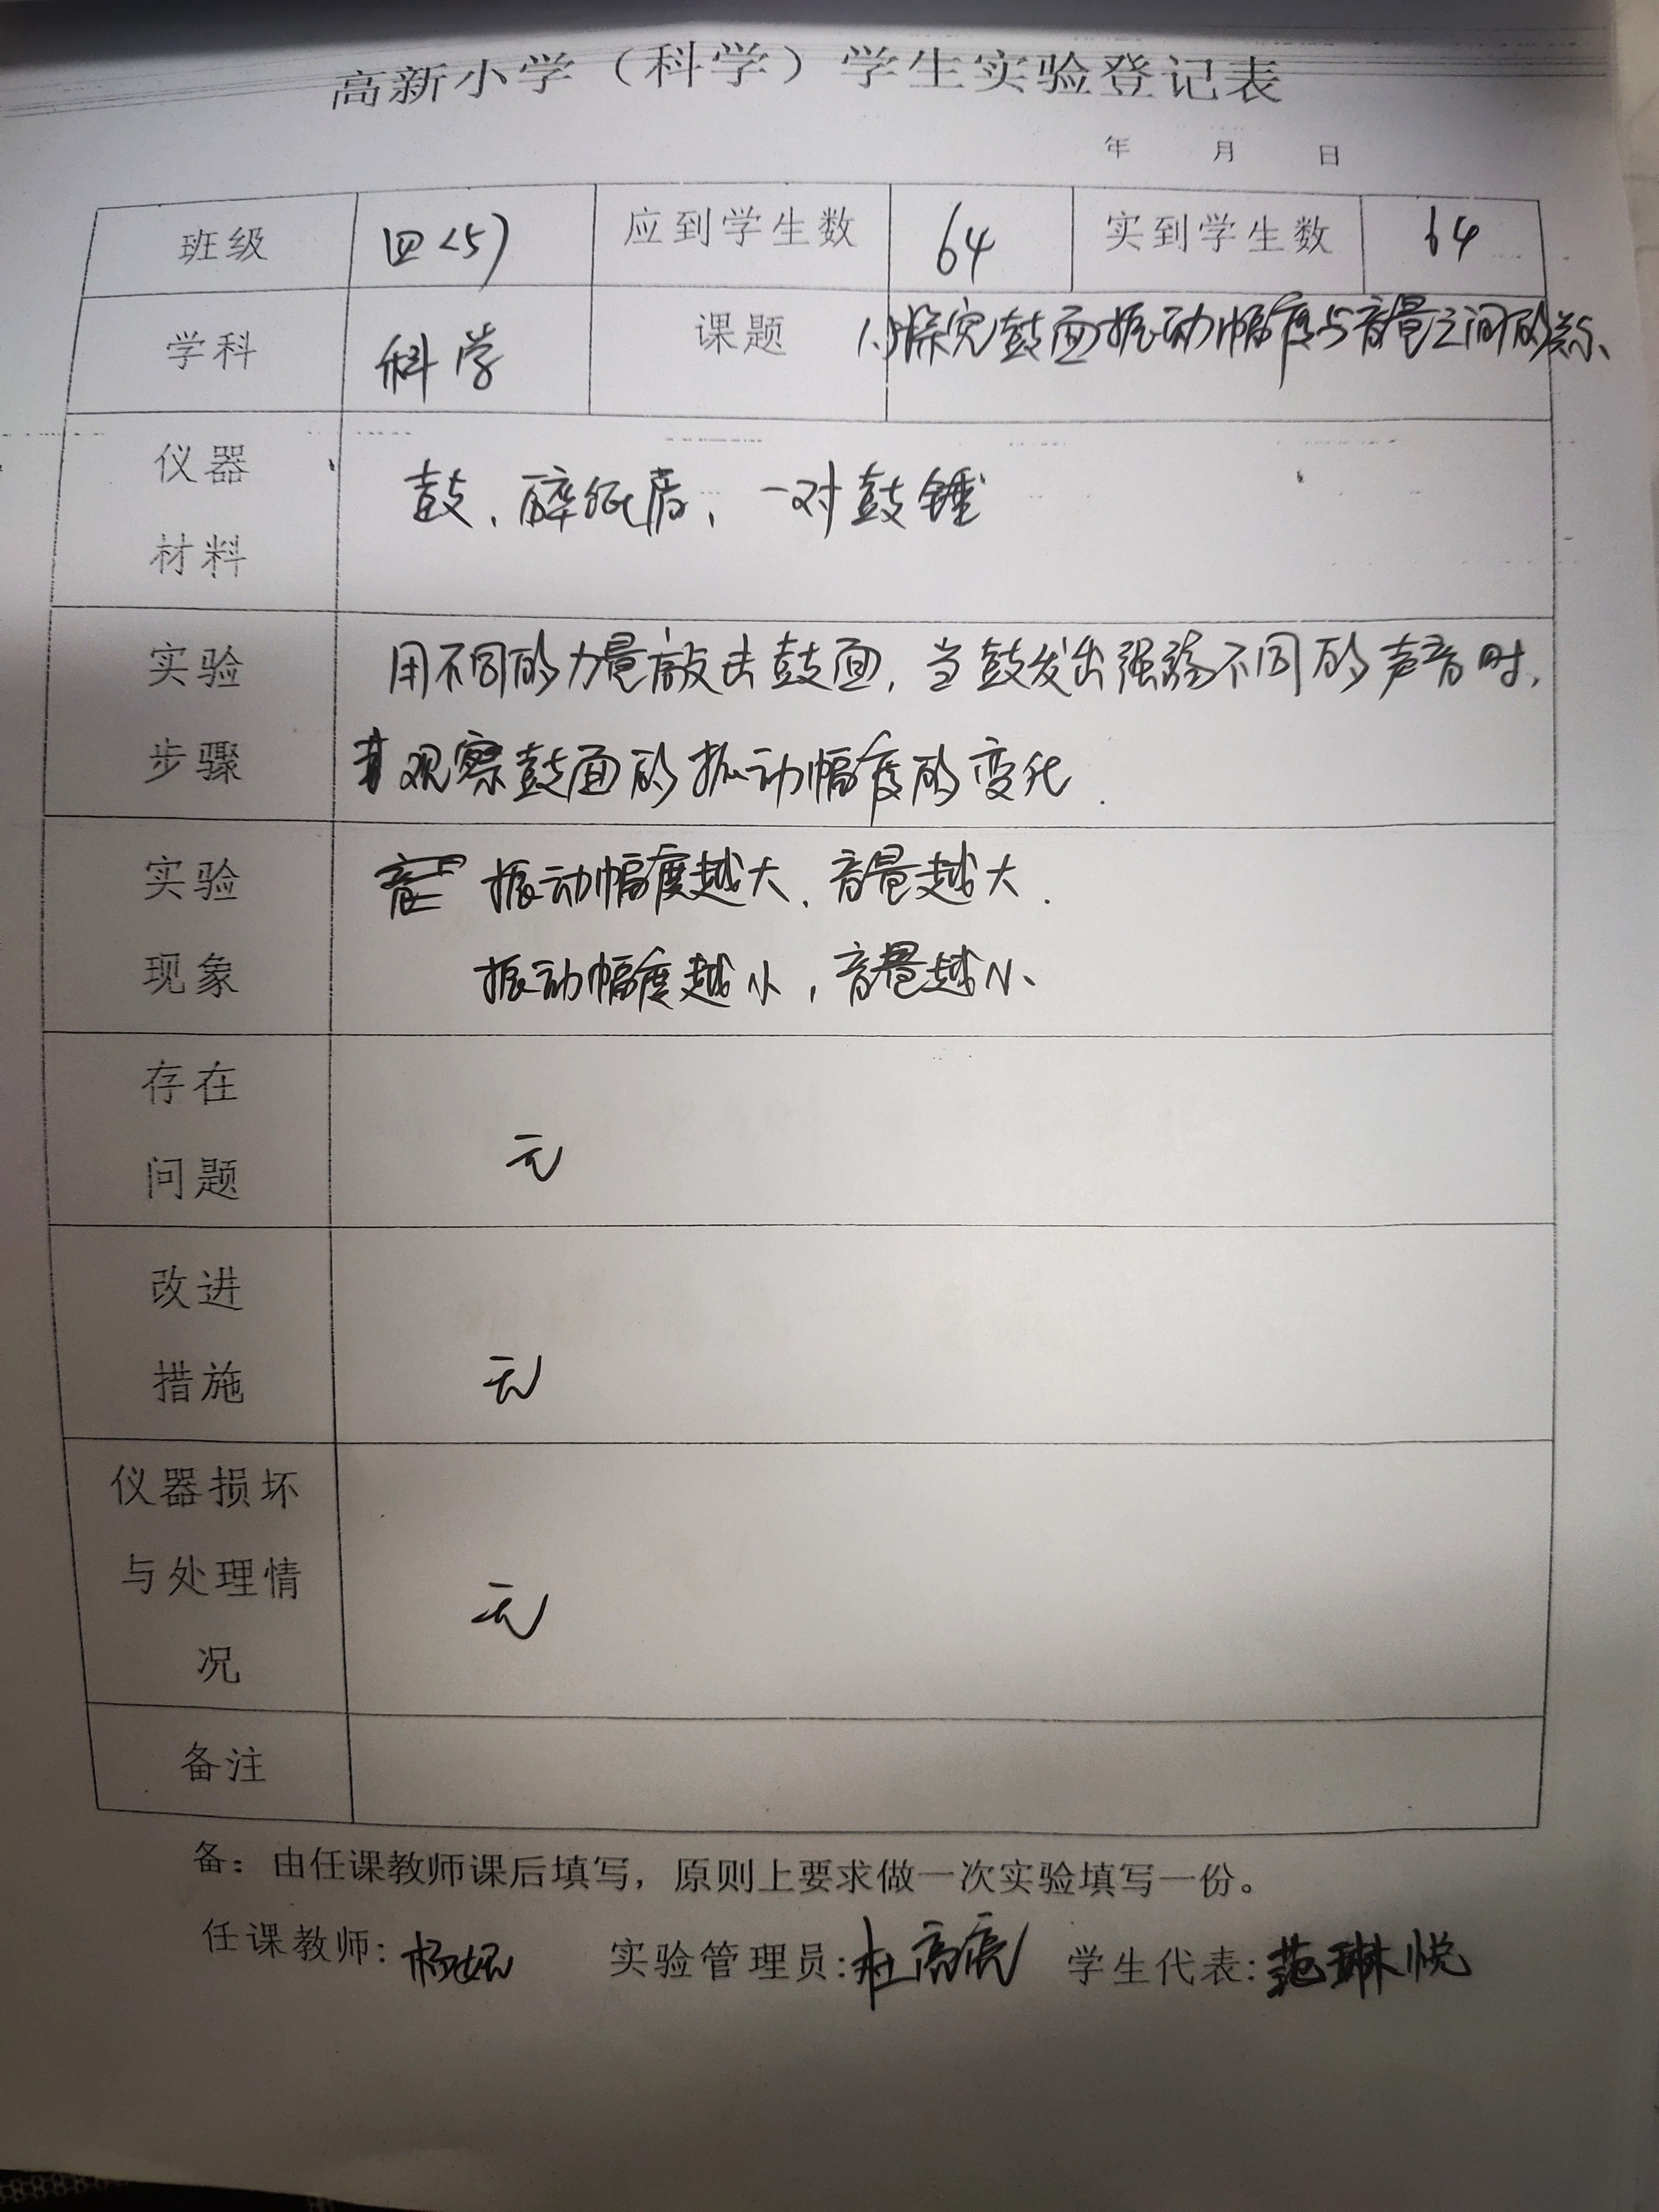 高新小学（科学）学生实验登记表
年 月 日
班级 四<5) 应到学生数 64 实到学生数 64
学科 科学 课题 探究鼓面振动幅度与音量之间的关系、
仪器 材料
鼓、碎纸屑、一对鼓锤
实验 步骤
用不同的力量敲击鼓面，当鼓发出强弱不同的声音时，
观察鼓面的振动幅度的变化.
实验 现象
振动幅度越大、音量越大.
振动幅度越小，音量越小、
存在 问题
无
改进 措施
无
仪器损坏
与处理情
况
无
备注
备：由任课教师课后填写，原则上要求做一次实验填写一份。
任课教师: 杨妮 实验管理员: 杜高虎 学生代表: 范琳悦